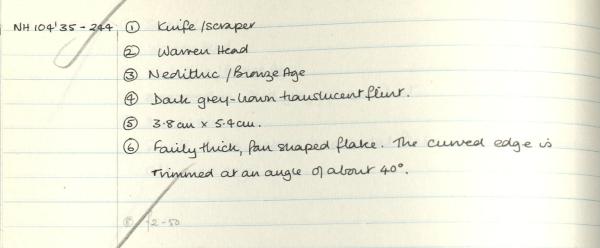 NH 104'35-244 ① Knife/scraper
② Warren Head
③ Neolithic/Bronze Age
④ Dark grey-brown translucent flint.
⑤ 3.8cm x 5.4cm.
⑥ Fairly thick, fan shaped flake. The curved edge is
trimmed at an angle of about 40°.
⑧ 2-50